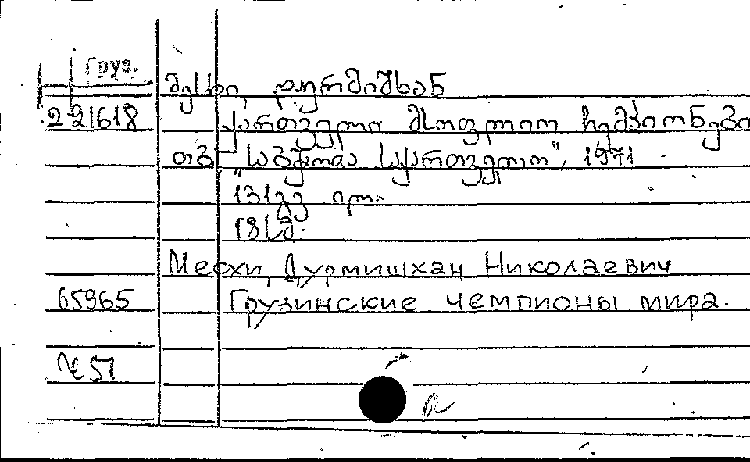 Груз.
მესხი, დურმიშხან
2-21618 ქართველი მსოფლიო ჩემპიონები
თბ., "საბჭოთა საქართველო", 1971
131გვ. ილ.
18სმ.
Месхи, Дурмишхан Николаевич
65965 Грузинские чемпионы мира.
№ 51